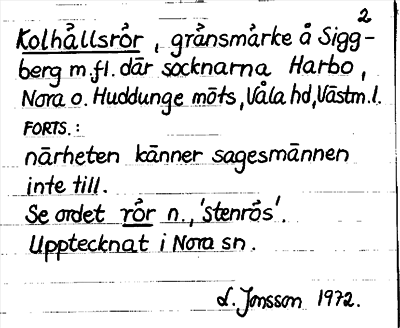 2
Kolhållsrör, gränsmärke å Sigg-
berg m.fl. där socknarna Harbo,
Nora o. Huddunge möts, Våla hd, Västm.l.
FORTS.:
närheten känner sagesmännen
inte till.
Se ordet rör n., 'stenrös'.
Upptecknat i Nora sn.
L. Jonsson 1972.